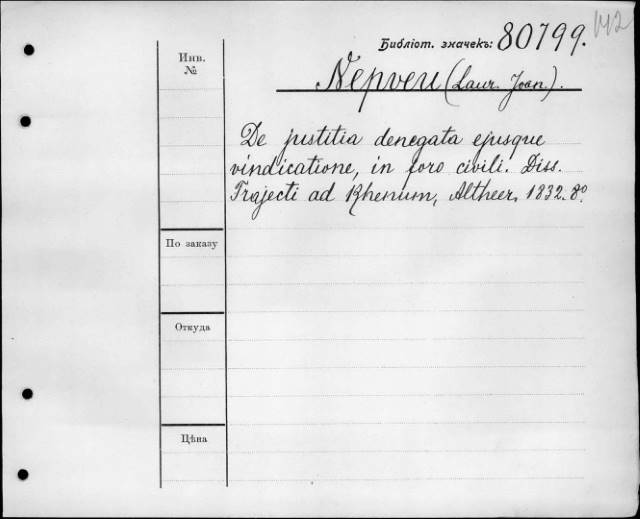 142
Библіот. значекъ: 80799.
Инв.
№
Nepveu (Laur. Joan.).
De justitia denegata ejusque
vindicatione, in foro civili. Diss.
Trajecti ad Rhenum, Altheer, 1832. 8º.
По заказу
Откуда
Цѣна